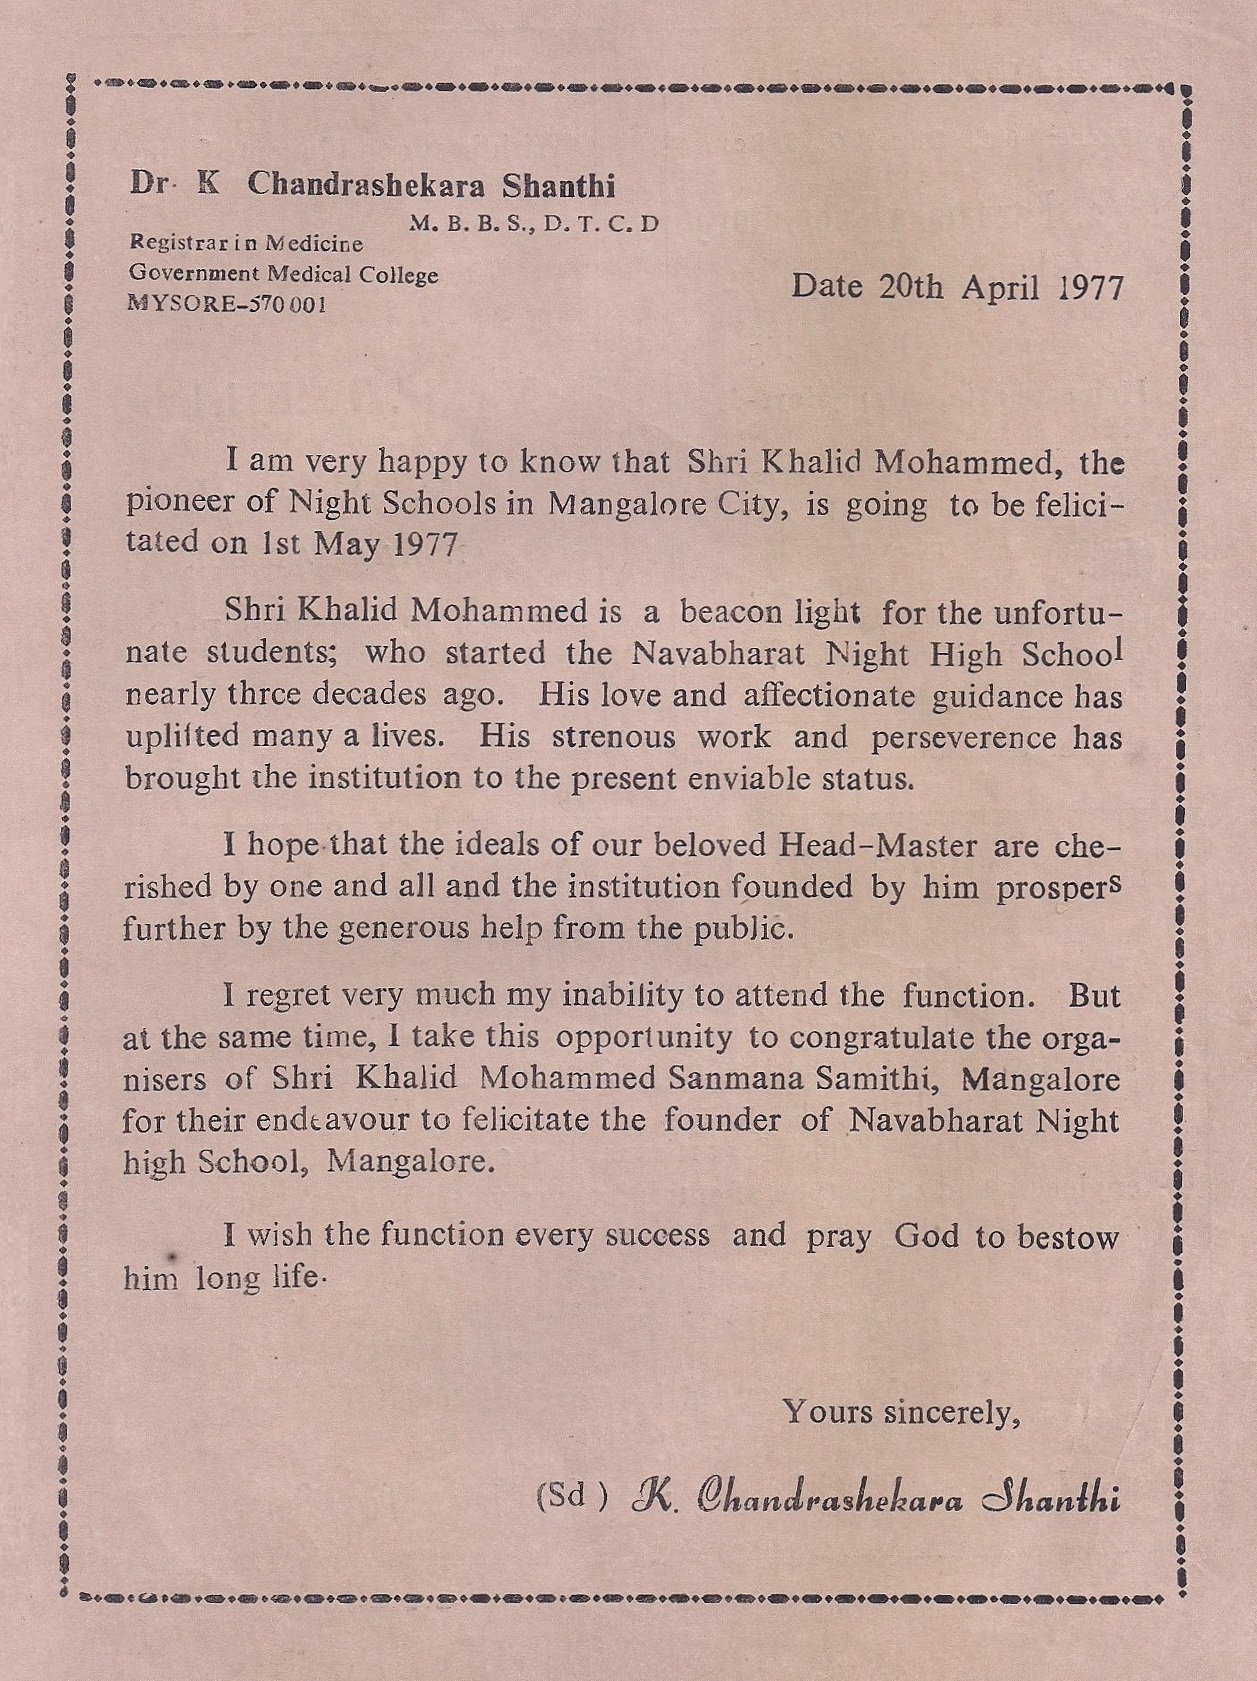 Dr. K Chandrashekara Shanthi
M. B. B. S., D. T. C. D
Registrar in Medicine
Government Medical College
MYSORE-570 001
Date 20th April 1977
I am very happy to know that Shri Khalid Mohammed, the
pioneer of Night Schools in Mangalore City, is going to be felici-
tated on 1st May 1977
Shri Khalid Mohammed is a beacon light for the unfortu-
nate students; who started the Navabharat Night High School
nearly thrce decades ago. His love and affectionate guidance has
uplifted many a lives. His strenous work and perseverence has
brought the institution to the present enviable status.
I hope that the ideals of our beloved Head-Master are che-
rished by one and all and the institution founded by him prospers
further by the generous help from the public.
I regret very much my inability to attend the function. But
at the same time, I take this opportunity to congratulate the orga-
nisers of Shri Khalid Mohammed Sanmana Samithi, Mangalore
for their endeavour to felicitate the founder of Navabharat Night
high School, Mangalore.
I wish the function every success and pray God to bestow
him long life.
Yours sincerely,
(Sd ) K. Chandrashekara Shanthi